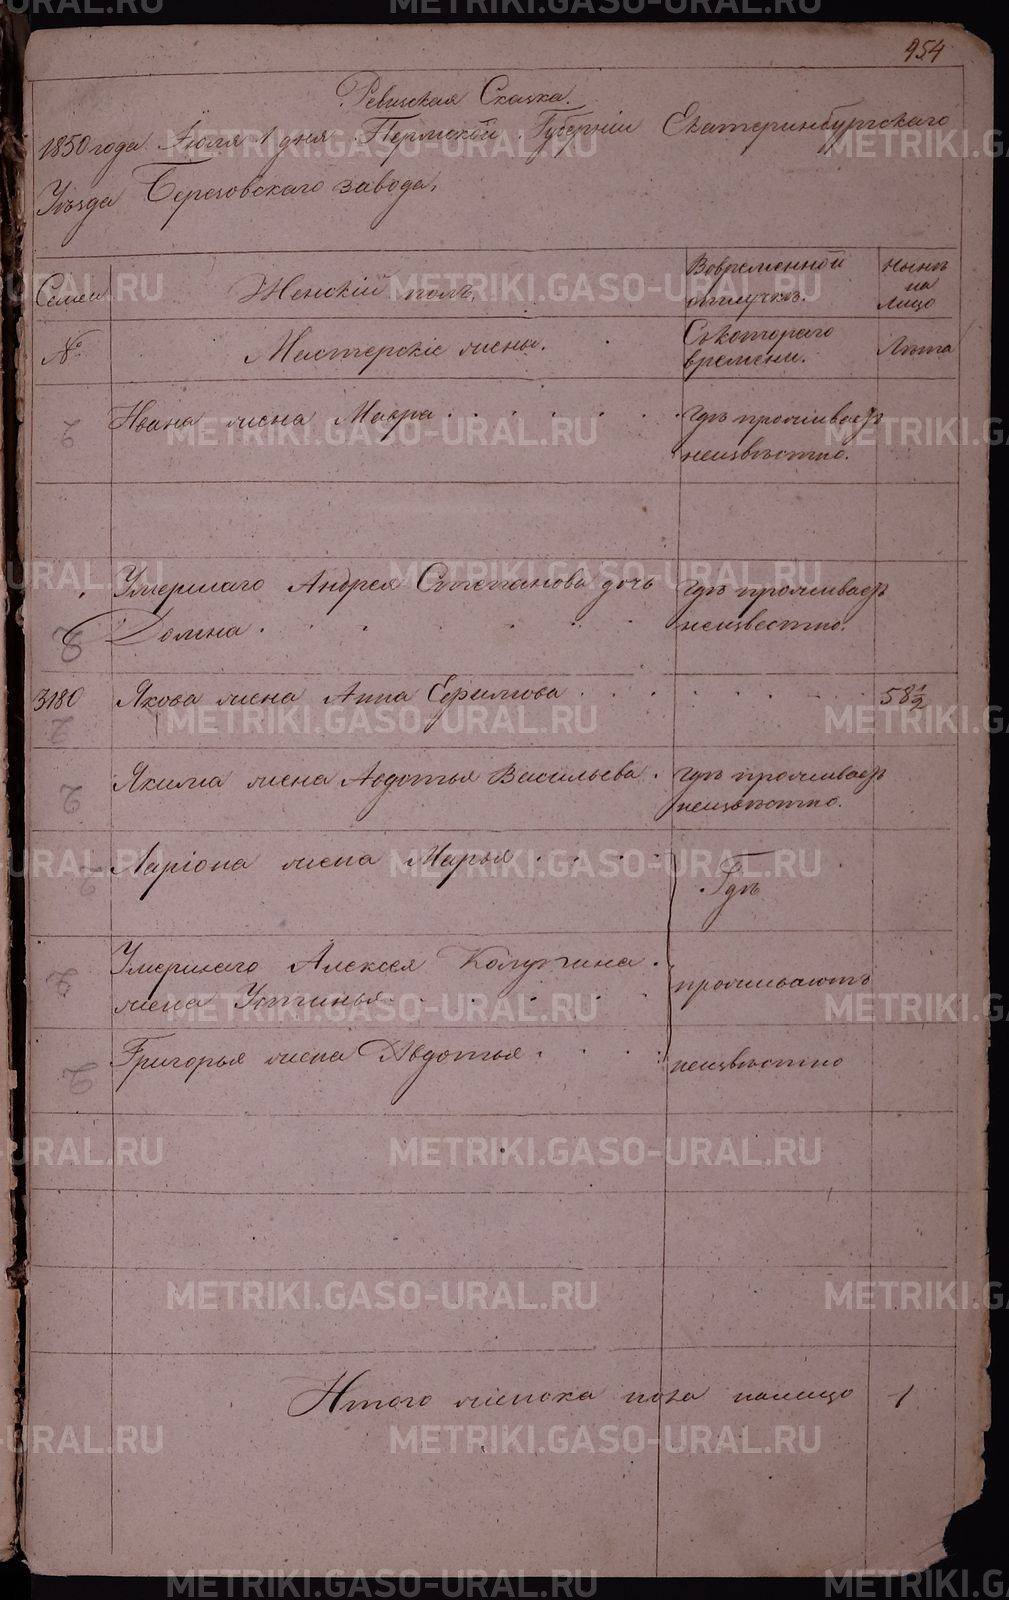 954
Ревиская Сказка.
1850 года Іюля 1 дня Пермской Губерніи Екатеринбургскаго
Уѣзда Березовскаго завода.
Семеи
Женскій полъ.
Вовременной
отлучкѣ.
Нынѣ
на
Лицо
№
Мастерскіе жены.
Съкотораго
времени.
Лѣта
Ивана жена Мавра
гдѣ проживаетъ
неизвѣстно.
Умершаго Андрея Степанова дочь
Домна
гдѣ проживаетъ
неизвестно.
3180 Якова жена Анна Ефимова 58 1/2
Якима жена Авдотья Васильева
гдѣ проживаетъ
неизвѣстно.
Ларіона жена Марья
Гдѣ
Умершаго Алексея Колупина
жена Устинья
проживаютъ
Григорья жена Авдотья
неизвѣстно
Итого женска пола налицо 1
METRIKI.GASO-URAL.RU